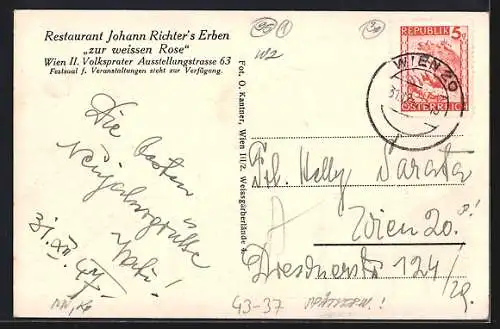 Restaurant Johann Richter's Erben
„zur weissen Rose"
Wien II. Volksprater Ausstellungstrasse 63
Festsaal f. Veranstaltungen steht zur Verfügung.
Die besten
Neujahrsgrüße
31. XII. 47.
Fot. O. Kantner, Wien III/2. Weissgärberlände 4.
REPUBLIK 5g
ÖSTERREICH
WIEN 20
Frl. Helly
Wien 20.
Dresdnerstr 124/29.
43-37